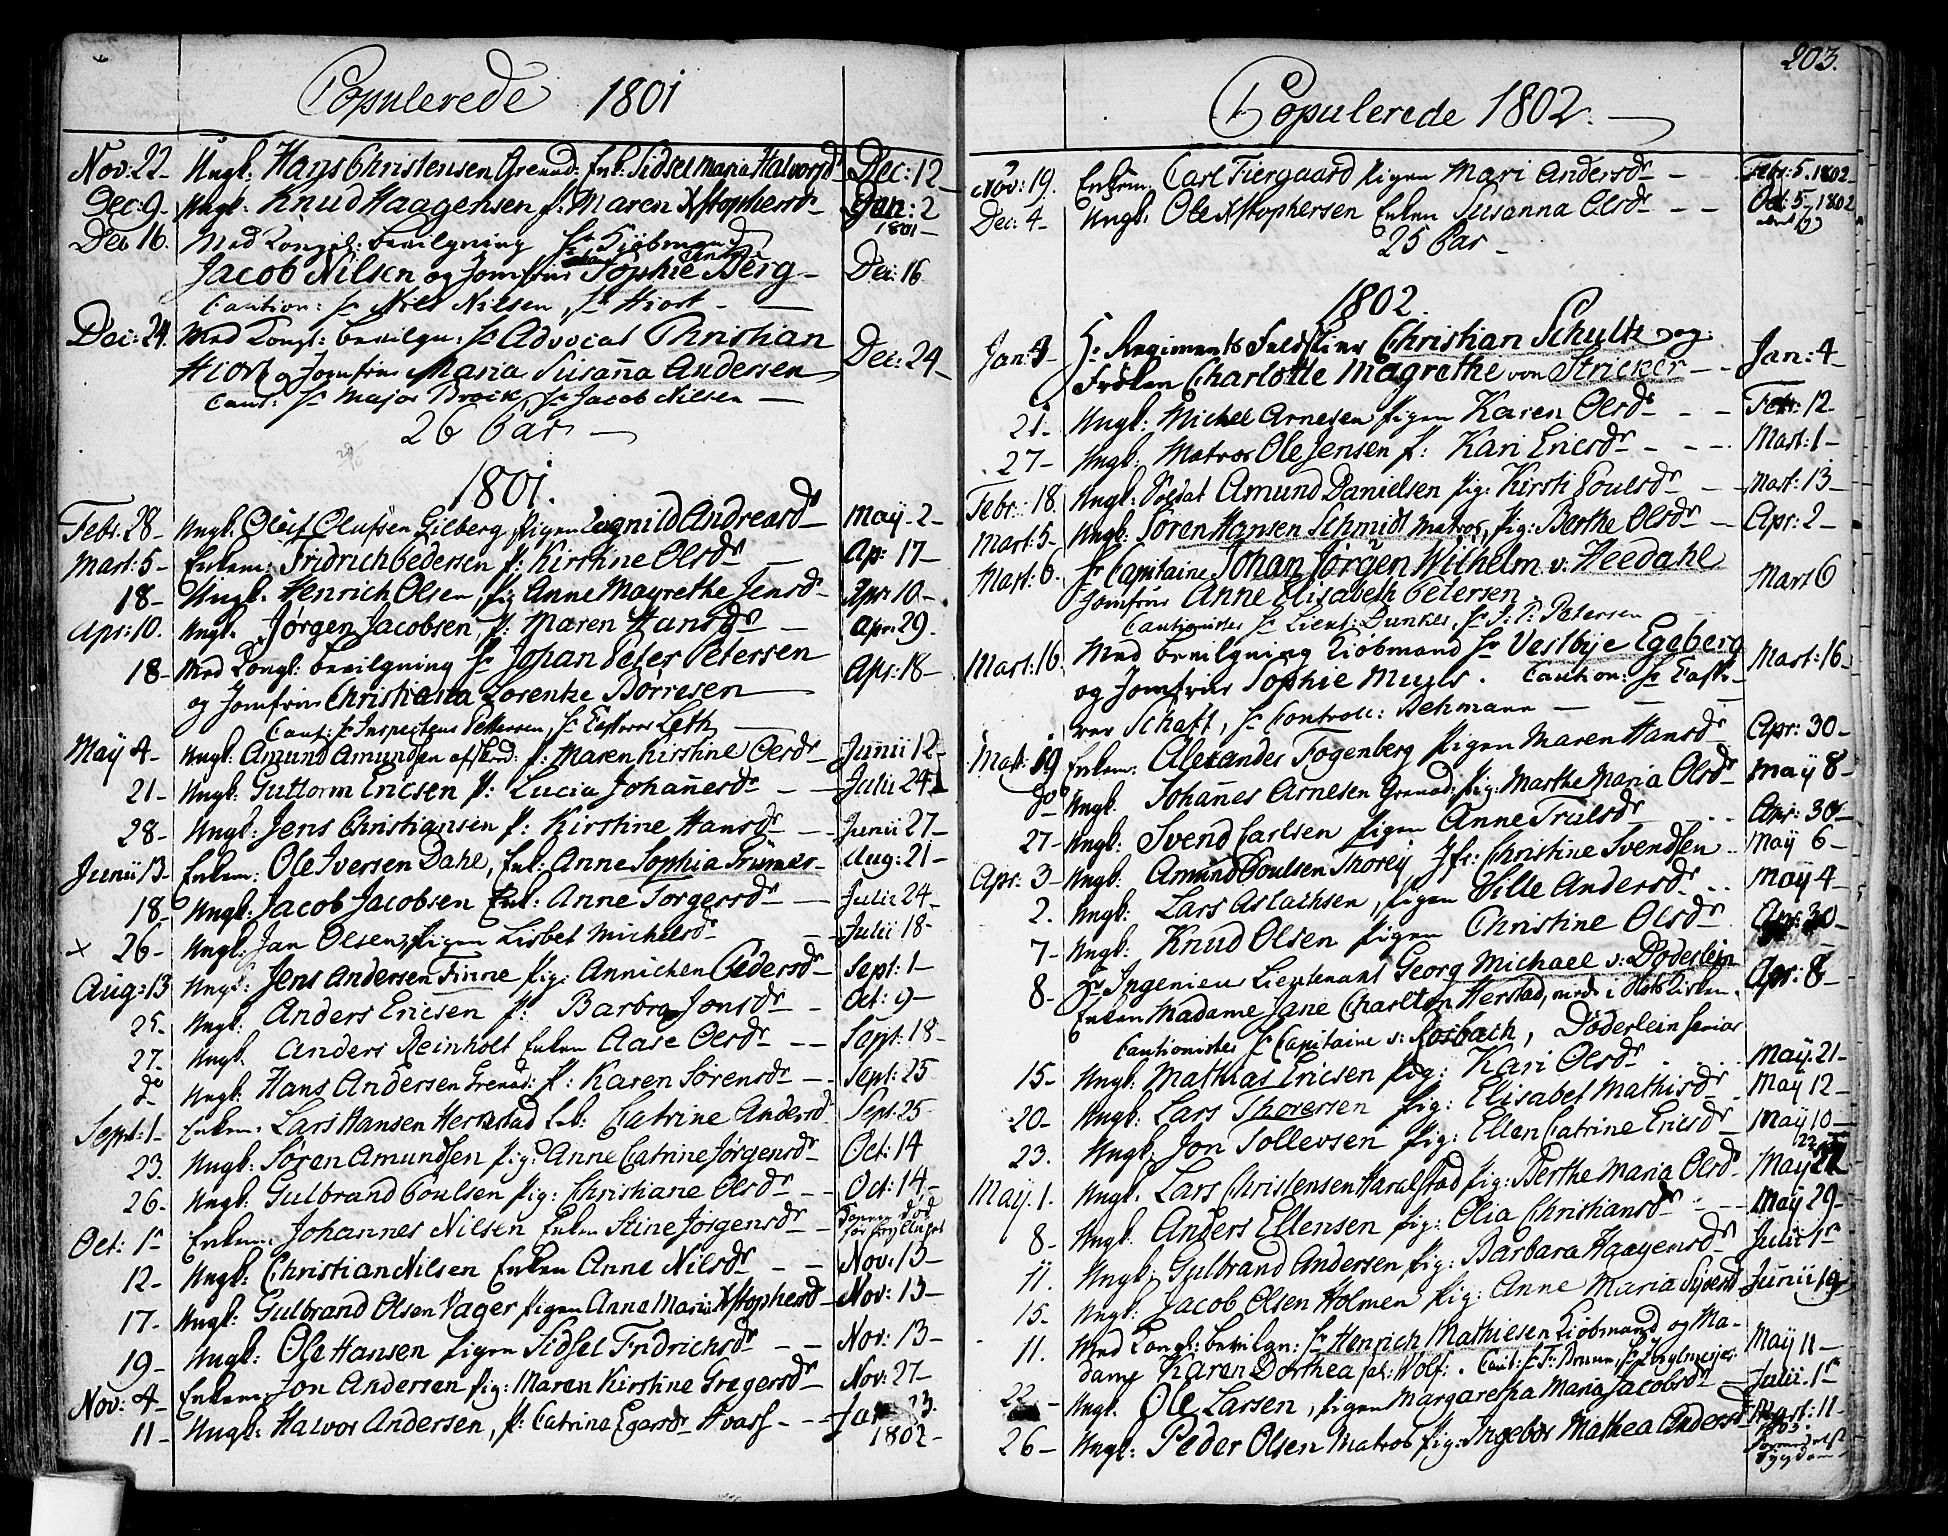 Populerede 1801
Nov: 22 - Ungk: Hans Christensen Grenad: Enk: Sidsel Maria Halvorsdr Dec: 12 -
Dec: 9 - Ungk. Knud Haagensen p: Maren Xstophersdr - Jan: 2
1801 -
Dec 16. Med Kongel: bevilgning Hr Kiøbmand
Jacob Nilsen og Jomfrue Sophie Berg - Dec: 16
Caution: Hr Niels Nilsen, Hr Hiort -
Dec: 24. Med Kongl: bevilgn: Hr Advocat Christian
Hiort og Jomfrue Maria Susanna Andersen Dec: 24 -
Caut: Hr Major Brock, Hr Jacob Nilsen -
26 Par -
1801.
Febr: 28 - Ungk: Oluf Olufsen Gilberg, pigen Ragnild Andreasdr - May - 2 -
Mart: 5 - Enkem: Fridrich Pedersen p: Kirstine Olsdr - Ap: 17 -
18 - Ungk. Henrich Olsen, pig Anne Magrethe Jensdr - Apr: 10 -
Apr: 10. Ungk. Jørgen Jacobsen, p: Maren Hansdr - Apr: 29.
18 - Med Kongl: bevilgning Hr Johan Peter Petersen Apr: 18 -
og Jomfrue Christiana Lorentze Børresen
Caut: Hr Inspecteur Pettersen, Hr Leth
May 4 - Ungk: Amund Amundsen afskeed: p: Maren Kirstine Olsdr - Junii 12 -
21 - Ungk: Guttorm Ericsen p: Lucia Johannesdr - - Julii 24
28 - Ungk: Jens Christiansen p: Kirstine Hansdr - - Junii 27 -
Junii 13 - Enkem: Ole Iversen Dahl, Enk: Anne Sophia Trümer - Aug: 21 -
18 - Ungk: Jacob Jacobsen Enk: Anne Torgersdr - - Julii 24 -
x 26 - Ungk: Jan Olsen, pigen Lisbet Michelsdr - Julii 18 -
Aug: 13 Ungk: Jens Andersen Finne pig: Annichen Pedersdr - Sept: 1 -
25 - Ungk: Anders Ericsen p: Barbra Jonsdr - - Oct: 9 -
27. Ungk. Anders Reinholt Enken Aase Olsdr - - Sept: 18 -
do - Ungk: Hans Andersen Grenad: p: Karen Sørensdr - - Sept: 25
Sept: 1 - Enkem: Lars Hansen Herrestad Enk: Catrine Andersd Sept: 25 -
23. Ungk: Søren Amundsen pig: Anne Catrine Jørgensdr - Oct: 14
26 - Ungk: Gulbrand Poulsen pig: Christiane Olsdr - - Oct: 14 -
Oct: 1 - Enkem: Johannes Nilsen Enken Stine Jørgensdr -
12 - Ungk: Christian Nilsen Enken Anne Nilsdr - - Nov: 13 -
17 - Ungk: Gulbrand Olsen Vager pigen Anna Maria Xstophersd - Nov: 13 -
19 - Ungk: Ole Hansen pigen Sidsel Fridrichsdr - - Nov: 13 -
Nov: 4 - Enkem: Jon Andersen pig: Maren Kirstine Gregersdr - Nov: 27 -
11 - Ungk: Halvor Andersen, p: Catrina Egarsdr Kvass - - - Jan 23.
1802 -
203.
Populerede 1802. -
Nov: 19. Enkem: Carl Fiergaard pigen Mari Andersdr - - Febr: 5. 1802 -
Dec: 4 - Ungk. Ole Xstophersen Enken Susanna Olsdr - - Oct: 5 - 1802
25 Par -
1802.
Jan: 4 - Hr Regiments Feldskier Christian Schultz og
Frøken Charlotte Magrethe von Stricker - - Jan: 4 -
21 - Ungk: Michel Arnesen pigen Karen Olsdr - - Febr: 12 -
27 - Ungk: Matros Ole Jensen p: Kari Ericsdr - - - Mart: 1 -
Febr: 18. Ungk: Soldat Amund Danielsen pig: Kirsti Poulsdr - - Mart: 13 -
Mart: 5 - Ungk: Søren Hansen Schmidt Matros, pig: Berthe Olsdr - Apr: 2 -
Mart: 6. Hr Capitaine Johan Jørgen Wilhelm v: Heedahl
Jomfrue Anne Elisabeth Petersen. Mart 6
Cautionister Hr Lieut: Dunker, Hr J: P: Petersen
Mart: 16. Med bevilgning Kiøbmand Hr Vestbye Egeberg Mart: 16 -
og Jomfrue Sophie Muels. Caution: Hr
Schaft, Hr Controll: Behmann - - -
Mart: 19 Enkem: Alexander Fogenberg pigen Maren Hansdr Apr: 30 -
do - Ungk. Johannes Arnesen Grenad: pig: Marthe Maria Olsdr May 8 -
27 - Ungk: Svend Carlsen pigen Anne Trulsdr - - - Apr: 30 -
Apr: 3 - Ungk: Amund Poulsen Thorey Jfr: Christine Svendsen .. May 6 -
2. Ungk: Lars Aslachsen, pigen Sille Andersdr .. May 4 -
7 - Ungk: Knud Olsen pigen Christine Olsdr - Apr: 30 -
8 - Hr Ingenieur Lieutenant Georg Michael v: Døderlein Apr: 8 -
Enken Madame Jane Charlton Herstad,
Cautionister Hr Capitaine v: Rosbach, Døderlein Senior
15 - Ungk: Mathias Ericsen pig: Kari Olsdr . . . . . May: 21 -
20 - Ungk: Lars Thoresen pig: Elisabet Mathisdr - May 12 -
23. Ungk: Jon Tollevsen pig: Ellen Catrine Ericsdr - May 10 -
May: 1. Ungk. Lars Christensen Haralstad pig: Berthe Maria Olsd - May 22
8 - Ungk. Anders Ellensen pig: Olia Christiansdr - - May 29 -
11. Ungk: Gulbrand Andersen pig: Barbara Haagensdr - Julii 1 -
15. Ungk: Jacob Olsen Holmen pig: Anne Maria Sivers Junii 19
11. Med Kongl: bevilgn: Hr Henrich Mathiesen Kiøbmand og Ma-
dame Karen Dorthea sal: Wolf. Caut: Hr T: Bruun, May 11 -
22 - Ungk. Ole Larsen, pigen Margaretha Maria Jacobsdr - Julii: 1 -
26 - Ungk: Peder Olsen Matros pig: Ingebor Mathea Andersd Mart: 11 -
1803